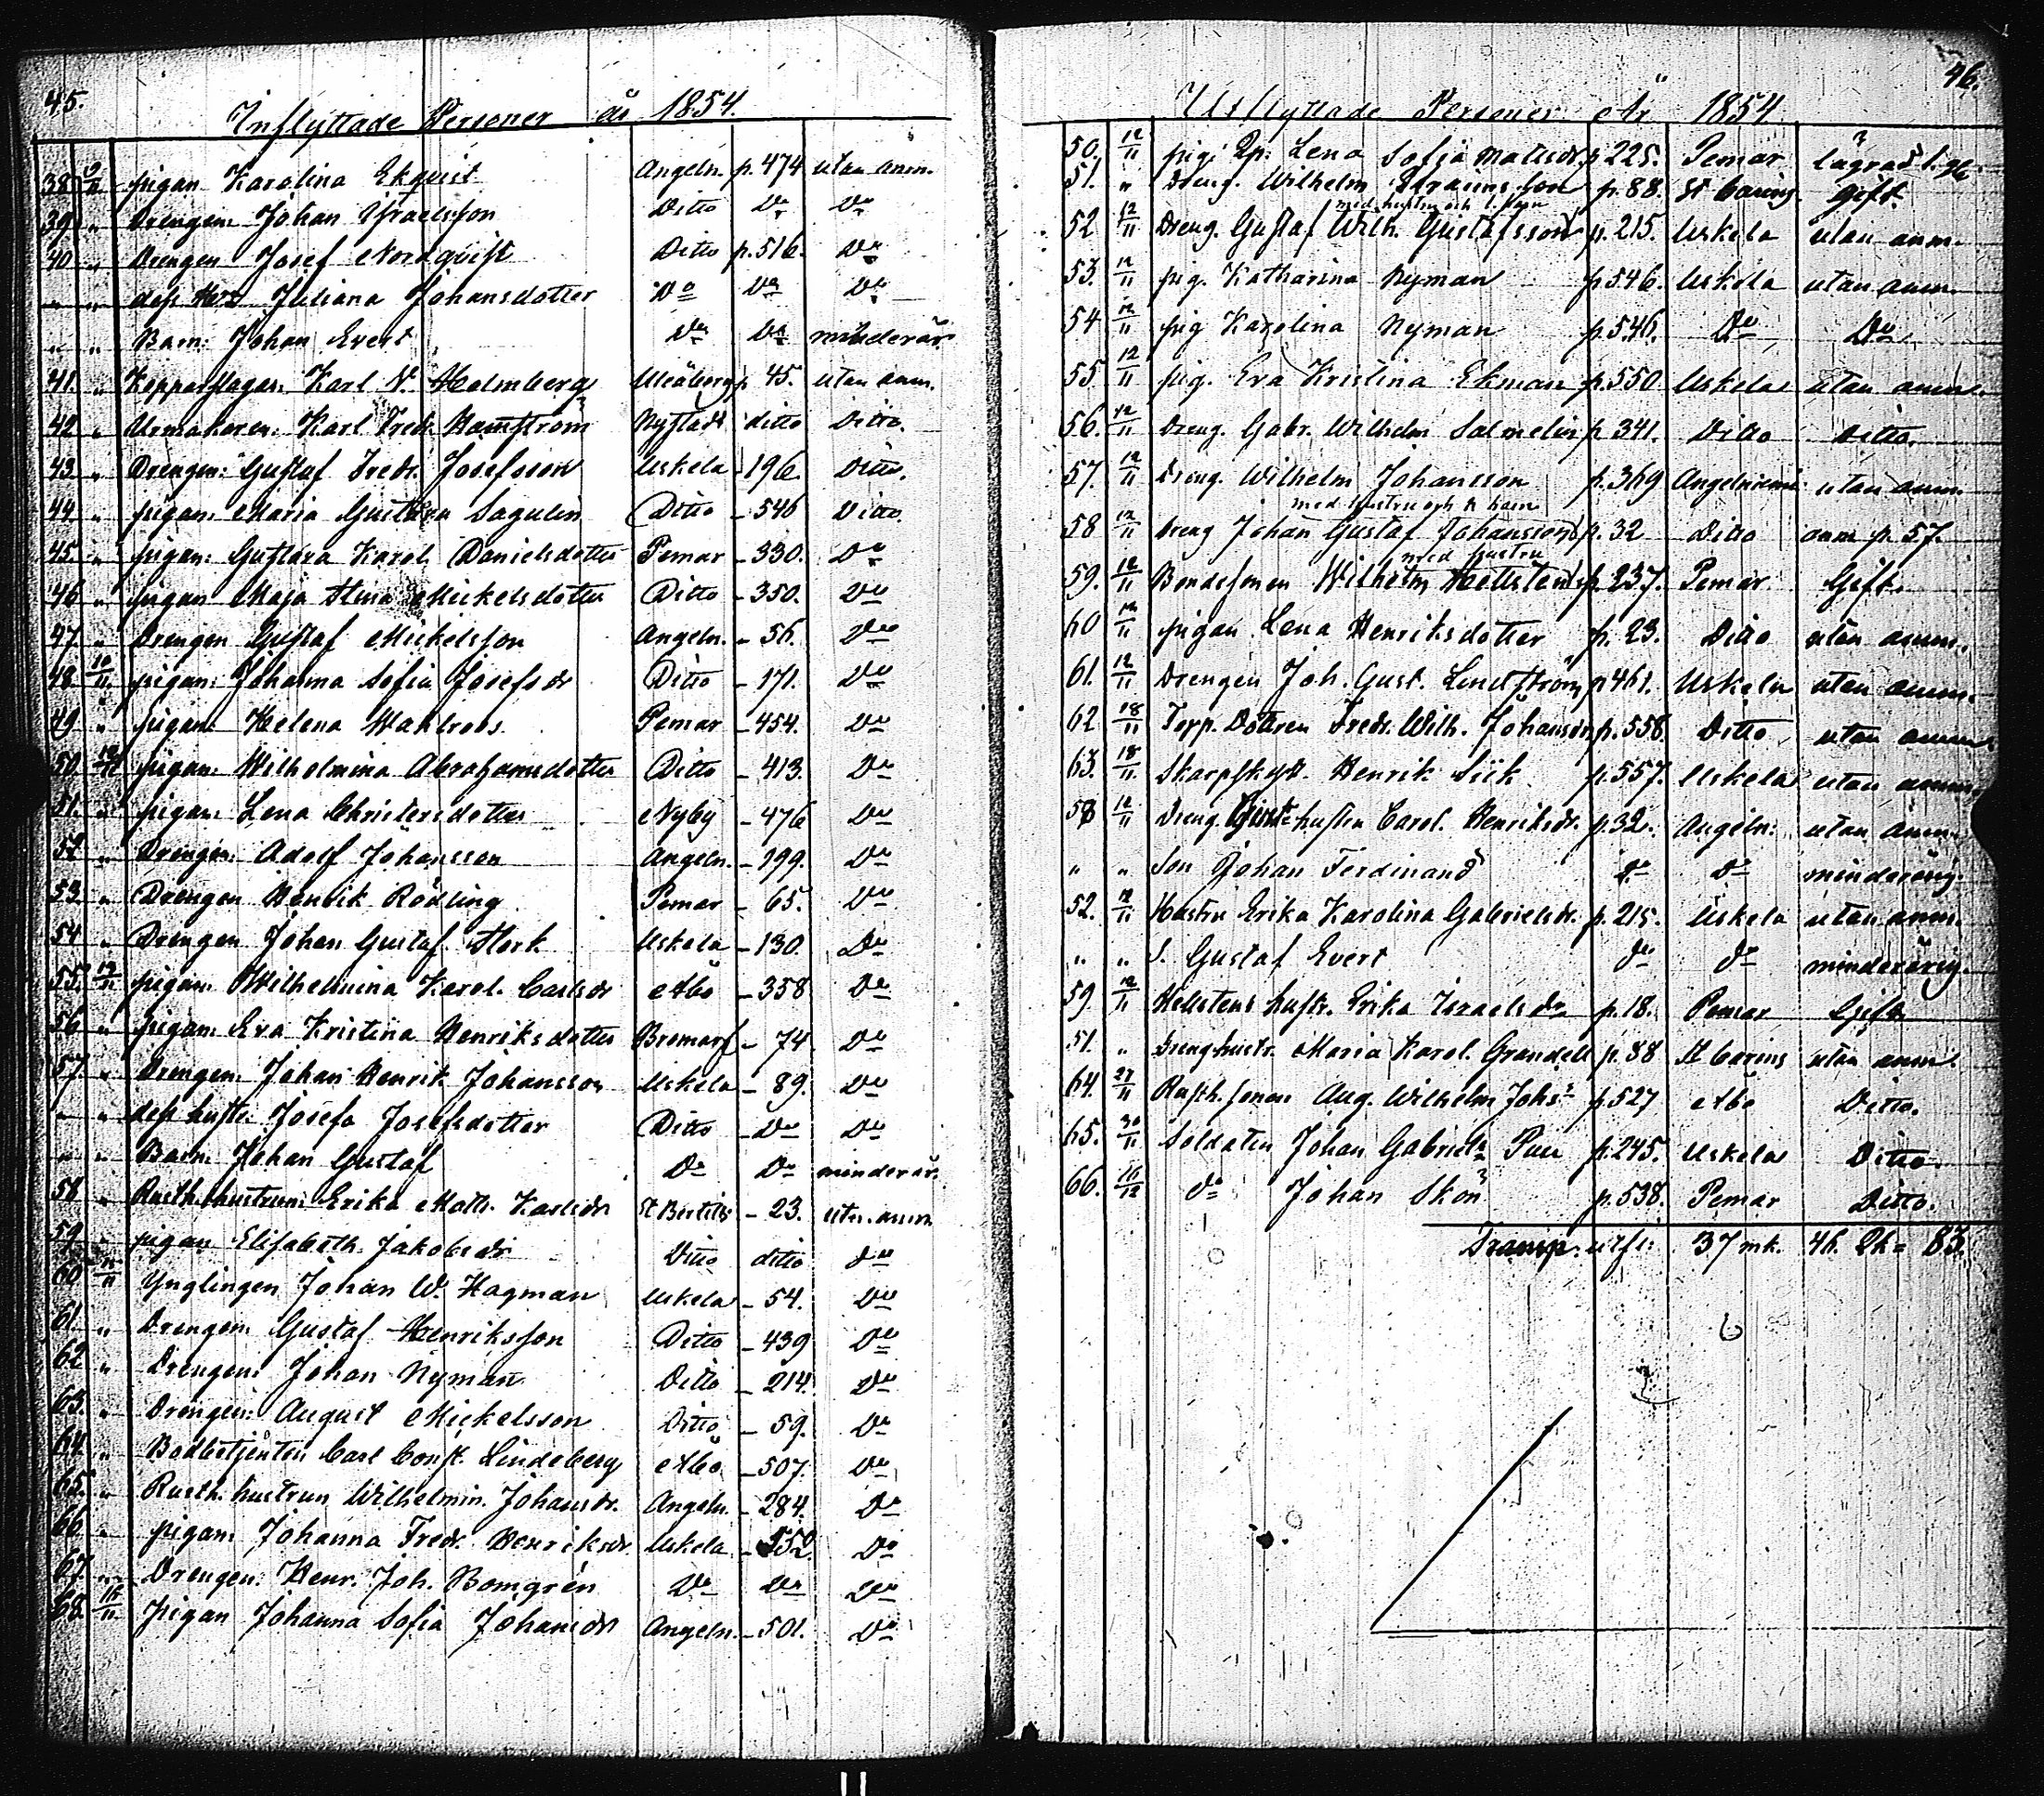 45.
Inflyttade Personer år 1854.
38 9/11 pigan Karolina Ekqvist Angeln. p. 474 utan anm.
39 " Drengen Johan Ysraelsson Ditto Do Do
40 " Drengen Josef Nordqvist Ditto p. 516. Do
" " dess Juliana Johansdotter Do Do Do
" " Barn: Johan Evert Do Do minderår.
41. " Kopparslagar. Karl N. Holmberg Uleåborg p 45. utan anm.
42 " Urmakaren: Karl Fredr. Hamström Nystadt ditto Ditto.
43 " Drengen: Gustaf Fredr. Josefsson Uskela - 196. Ditto.
44 " pigan: Maria Gustava Sagulin Ditto - 546 Ditto
45 " pigan: Gustava Karol. Danielsdotter Pemar - 330. Do
46 " pigan Maja Stina Mickelsdotter Ditto - 350. Do
47. " Drengen Gustaf Mickelsson Angeln. - 56. Do
48 10/11 pigan: Johanna Sofia Josefsdr Ditto - 171. Do
49 " pigan: Helena Wahlroos Pemar - 454. Do
50. 12/11 pigan: Wilhelmina Abrahamsdotter Ditto - 413. Do
51. " pigan: Lena Christersdotter Nyby - 476 Do
52 " Drengen: Adolf Johansson Angeln. - 199. Do
53. " Drengen Henrik Rödling Pemar - 65. Do
54 " Drengen Johan Gustaf Stork Uskela - 130. Do
55. 12/11 pigan: Wilhelmina Karol. Carlsdr Åbo - 358 Do
56 " pigan: Eva Kristina Henriksdotter Bromarf - 74 Do
57 " Drengen: Johan Henrik Johansson Uskela - 89. Do
" " dess hustr: Josefa Josefsdotter Ditto - Do Do
" " Barn: Johan Gustaf Do Do minderår.
58 " Rusth.hustrun: Erika Math. Karlsdr St Bertils - 23. utan anm
59 " pigan Elisabeth Jakobsdr Ditto ditto do
60 Ynglingen Johan W. Hagman Uskela - 54. Do
61. " Drengen: Gustaf Henriksson Ditto - 439 Do
62 " Drengen: Johan Nyman Ditto - 214. Do
63. " Drengen: August Mickelsson Ditto - 59. Do
64 " Bodbetjenten Carl Const. Lindeberg Åbo - 507. Do
65. " Rusth. hustrun Wilhelmin. Johansdr. Angeln. - 284. Do
66. " pigan: Johanna Fredr. Henriksdr. Uskela - 552. Do
67. " Drengen: Henr. Joh. Bomgrén Do Do Do
68. pigan Johanna Sofia Johansdr Angeln. - 501. Do
46.
Utflyttade Personer År 1854
50. 12/11 pig. Lena Sofia Mattsdr p. 225. Pemar lagrad
51. " Dreng. Wilhelm p. 88. St Carins. gift.
med hustru och 1 son
52 12/11 Dreng. Gustaf Wilh. Gustafsson p. 215. Uskela utan anm.
53. 12/11 pig. Katharina Nyman p. 546. Uskela utan anm.
54 12/11 pig Karolina Nyman p. 546. Do Do
55. 12/11 pig. Eva Kristina Ekman p. 550 Uskela utan anm.
56. 12/11 Dreng. Gabr. Wilhelm Salmelin p 341. Ditto Ditto.
57. 12/11 Dreng. Wilhelm Johansson p. 369 Angelniemi utan anm.
med hustru och barn
58 12/11 Dreng Johan Gustaf Johansson p. 32 Ditto anm p. 57.
med hustru
59. 12/11 Bondesonen Wilhelm Hellsten p. 237. Pemar Gift.
60 12/11 pigan Lena Henriksdotter p. 23. Ditto utan anm.
61. 12/11 Drengen Joh. Gust. Lindström p 461. Uskela utan anm.
62 18/11 Torp. Dottren Fredr. Wilh. Johansdr p. 558. Ditto utan anm
63. 18/11 Skarpskytt. Henrik Siik p. 557. Uskela utan anm.
58 12/11 Dreng. hustru Carol. Henriksdr. p. 32. Angeln: utan anm.
" " Son Johan Ferdinand do do minderårig.
52. 12/11 Hustru Erika Karolina Gabrielsdr. p. 215. Uskela utan anm.
" " S. Gustaf Evert do do minderårig.
59 12/11 Hellstens hustr. Erika Israelsdr p. 18. Pemar Gift
51. " Drenghustr. Maria Karol. Grandell p. 88 St Carins utan anm.
64. 27/11 Rusth. sonen Aug. Wilhelm Johs: p. 527 Åbo Ditto.
65. 30/11 Soldaten Johan Gabriels: Puu p. 245. Uskela Ditto.
66. do Johan Skön p. 538. Pemar Ditto.
Transp. utfl: 37 mk. 46. Qk = 83.